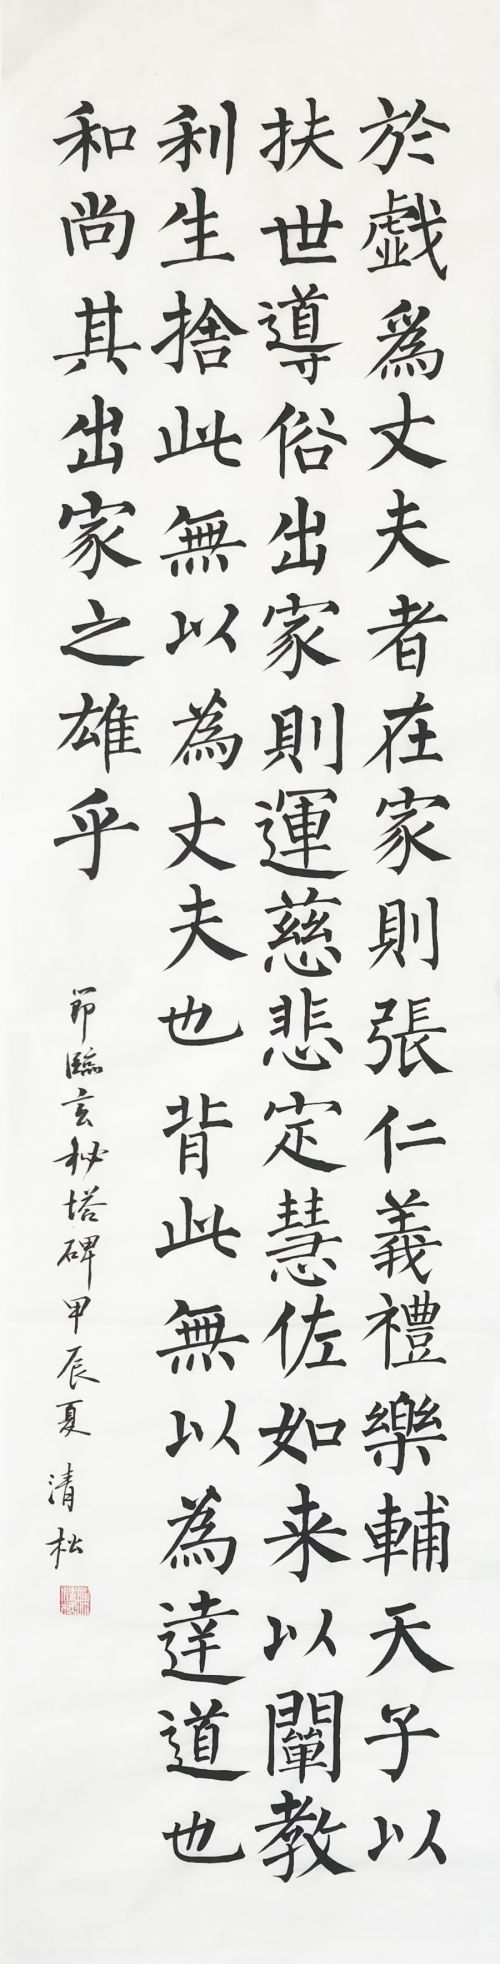 於戲爲丈夫者在家則張仁義禮樂輔天子以
扶世導俗出家則運慈悲定慧佐如来以闡教
利生捨此無以為丈夫也背此無以為達道也
和尚其出家之雄乎
節臨玄秘塔碑甲辰夏清松